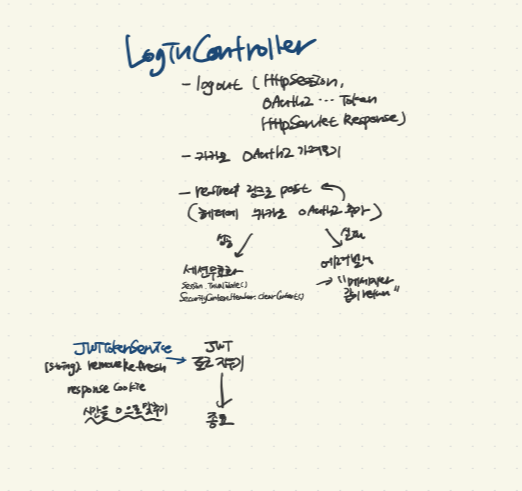 LogInController
- logout (HttpSession,
OAuth2 ... Token
HttpServlet Response)
- 카카오 OAuth2 가져오기
- restTest 링크로 post
(헤더에 카카오 OAuth2 추가)
성공
실패
세션무효화
Session.Invalidate()
SecurityContextHolder.clearContext()
에러발생
→ "메세지와 같이 return"
JWTTokenService
(String). removeRefresh
response Cookie
시간을 0으로 맞추기
JWT
토큰 지우기
종료